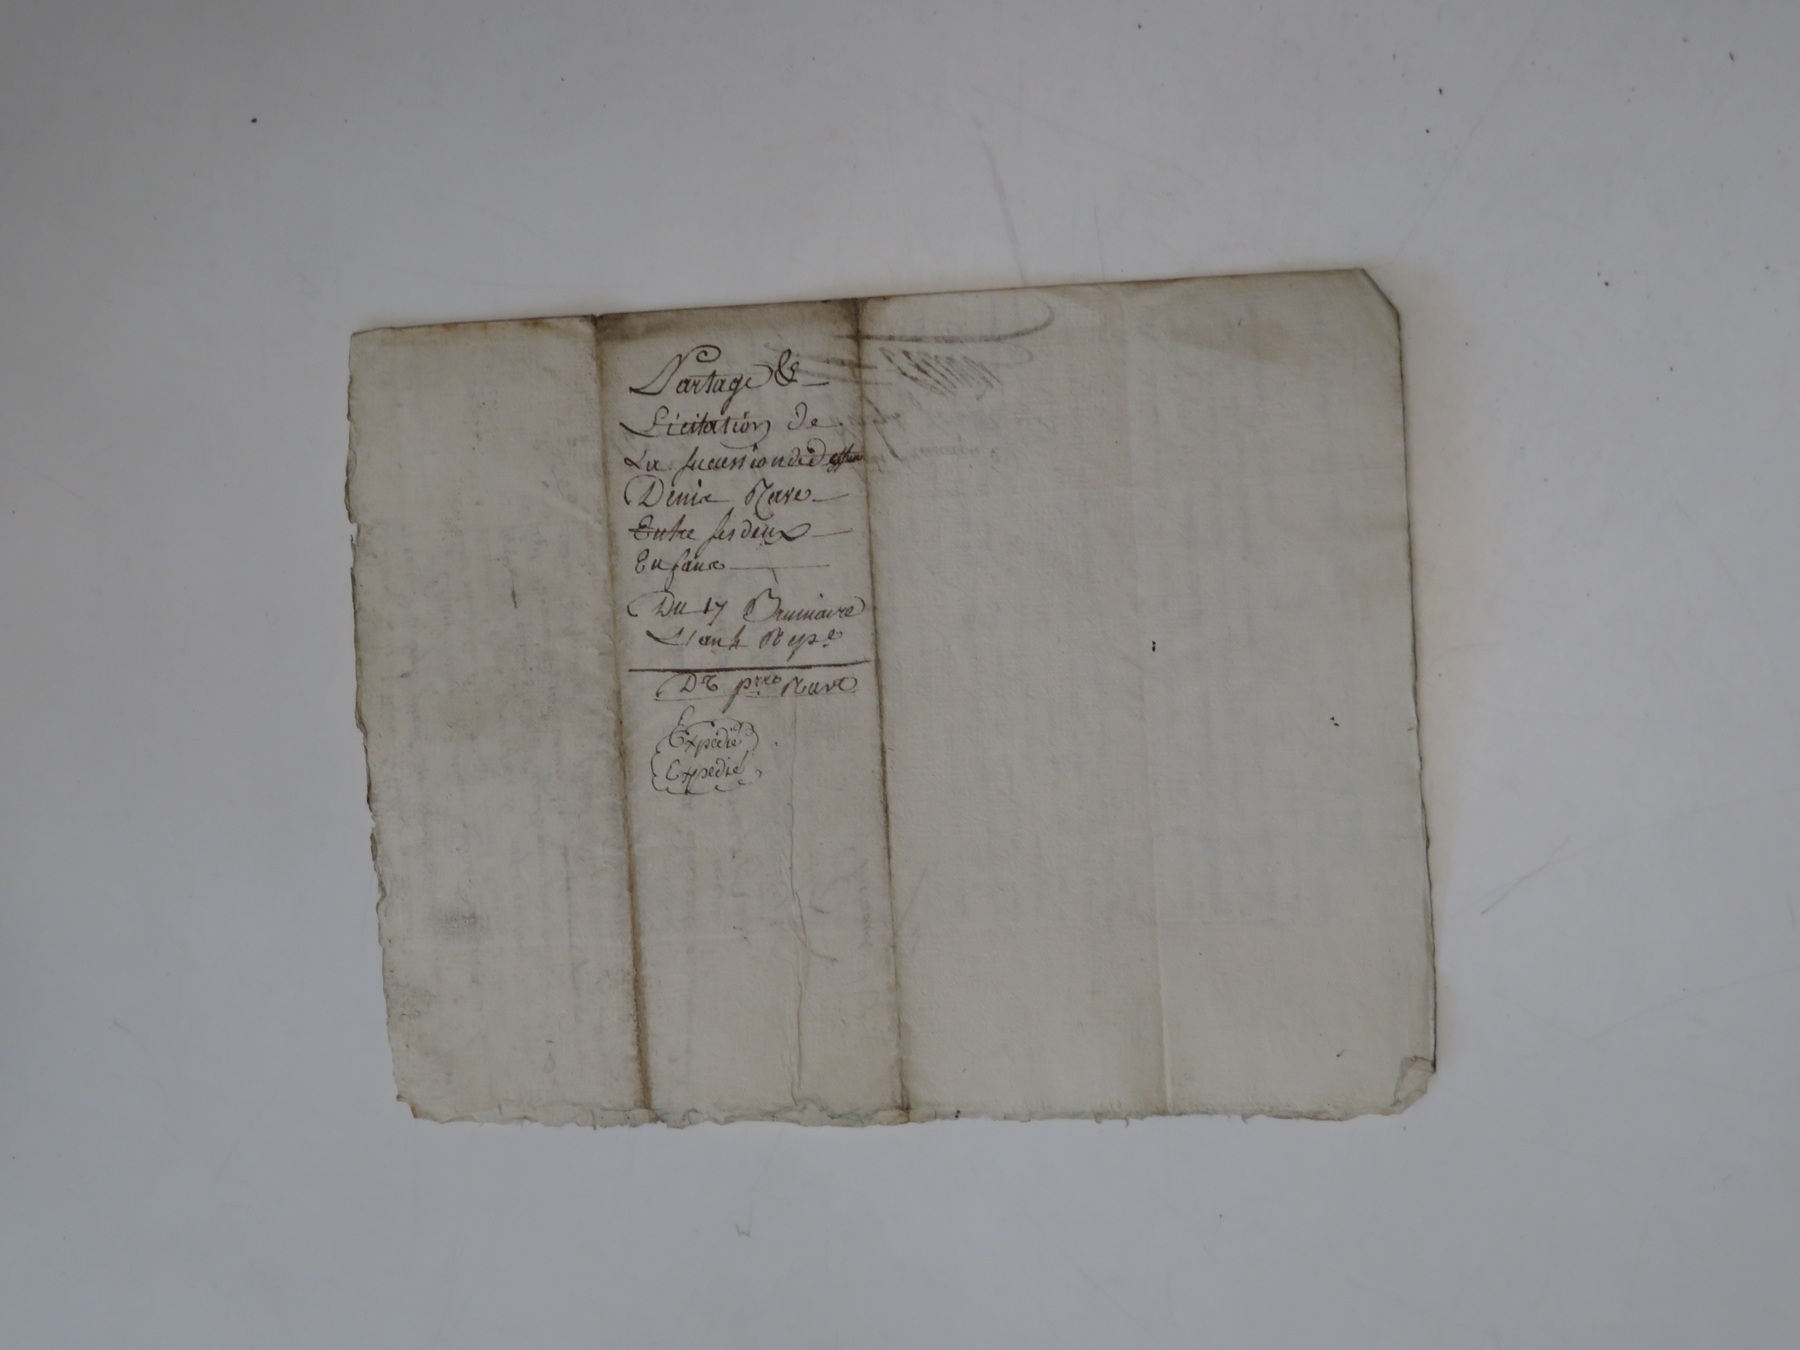 Partage &
Licitation de
La sucession de deffun
Denis Nave
Entre ses deux
Enfans
Du 17 Brumaire
L'an 4 Rep.e
Dt p.re Nave
Expédié
Expédié